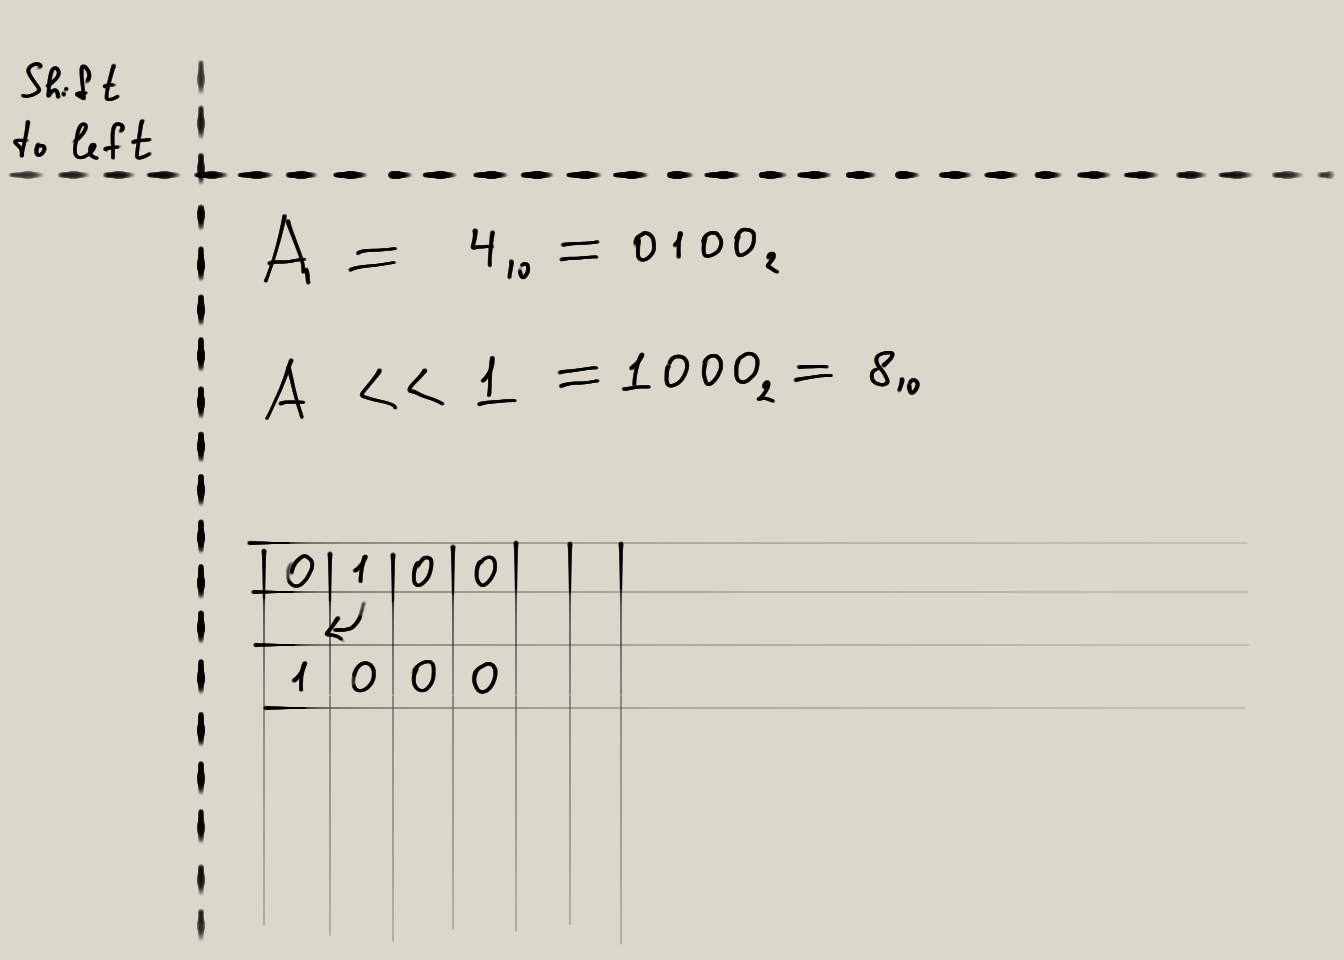 Shift
to left
A = 4₁₀ = 0100₂
A << 1 = 1000₂ = 8₁₀
0 1 0 0
1 0 0 0